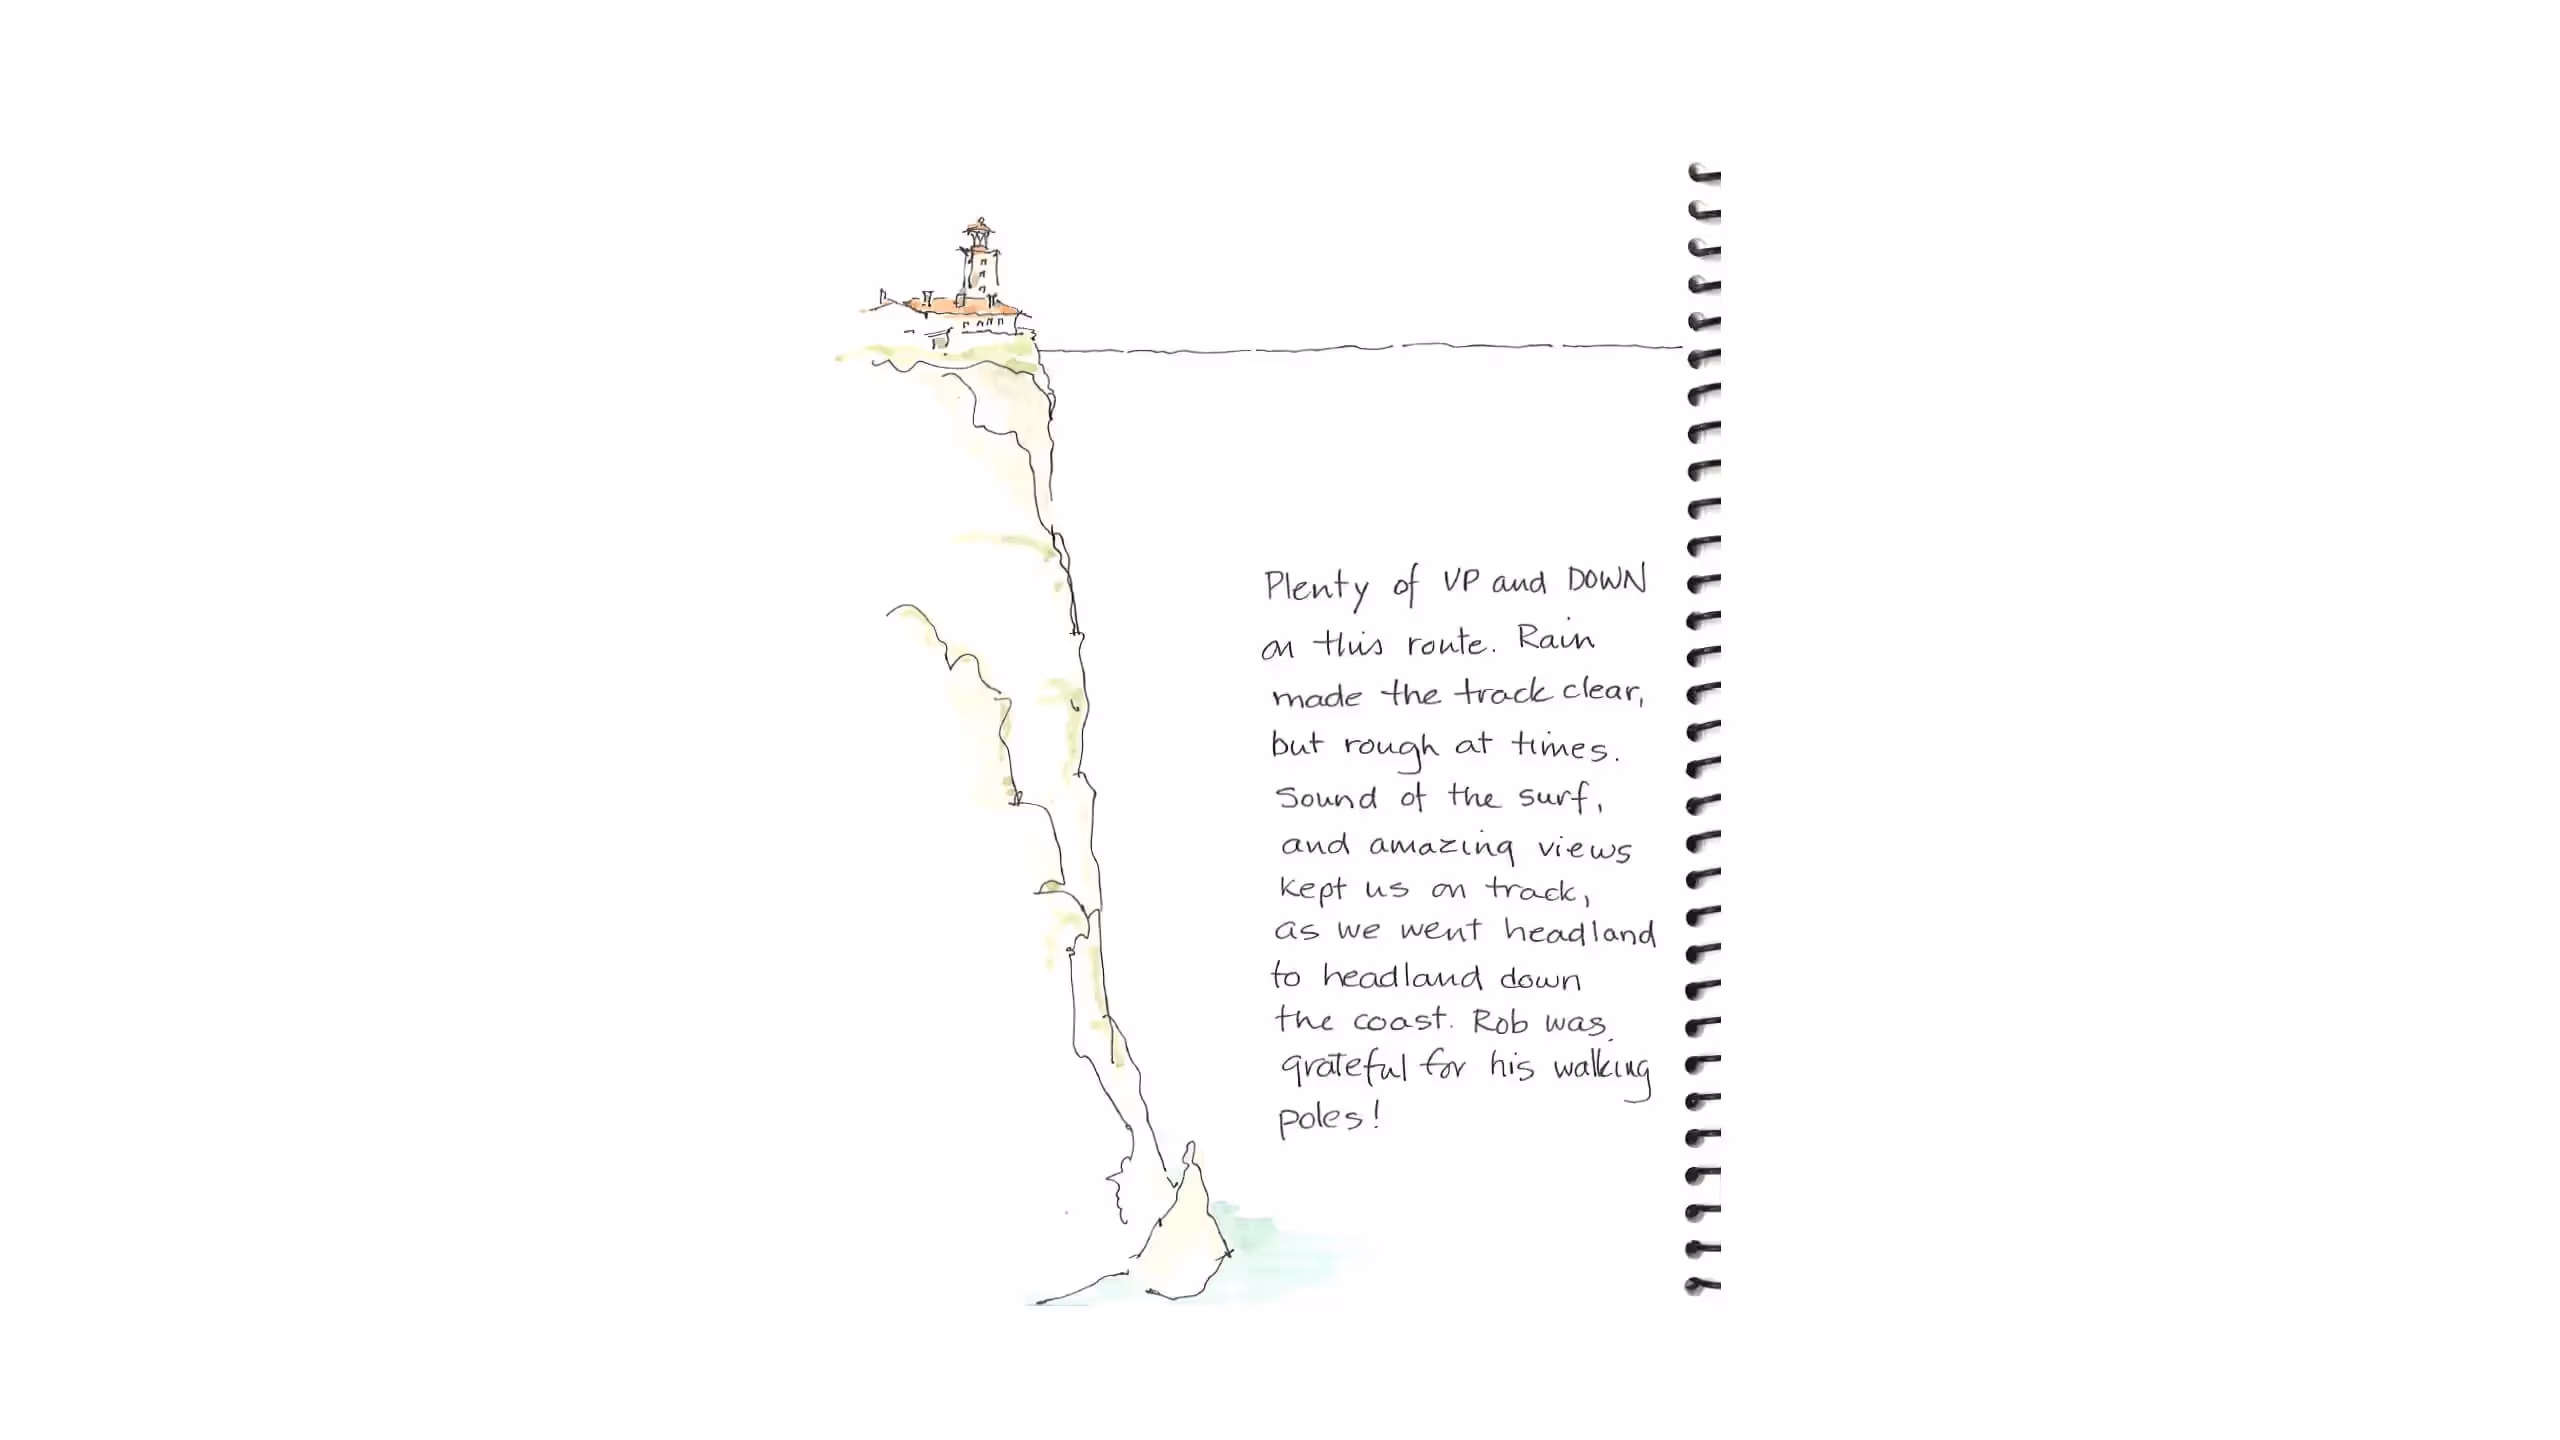 Plenty of UP and DOWN
on this route. Rain
made the track clear,
but rough at times.
Sound of the surf,
and amazing views
kept us on track,
as we went headland
to headland down
the coast. Rob was
grateful for his walking
poles!